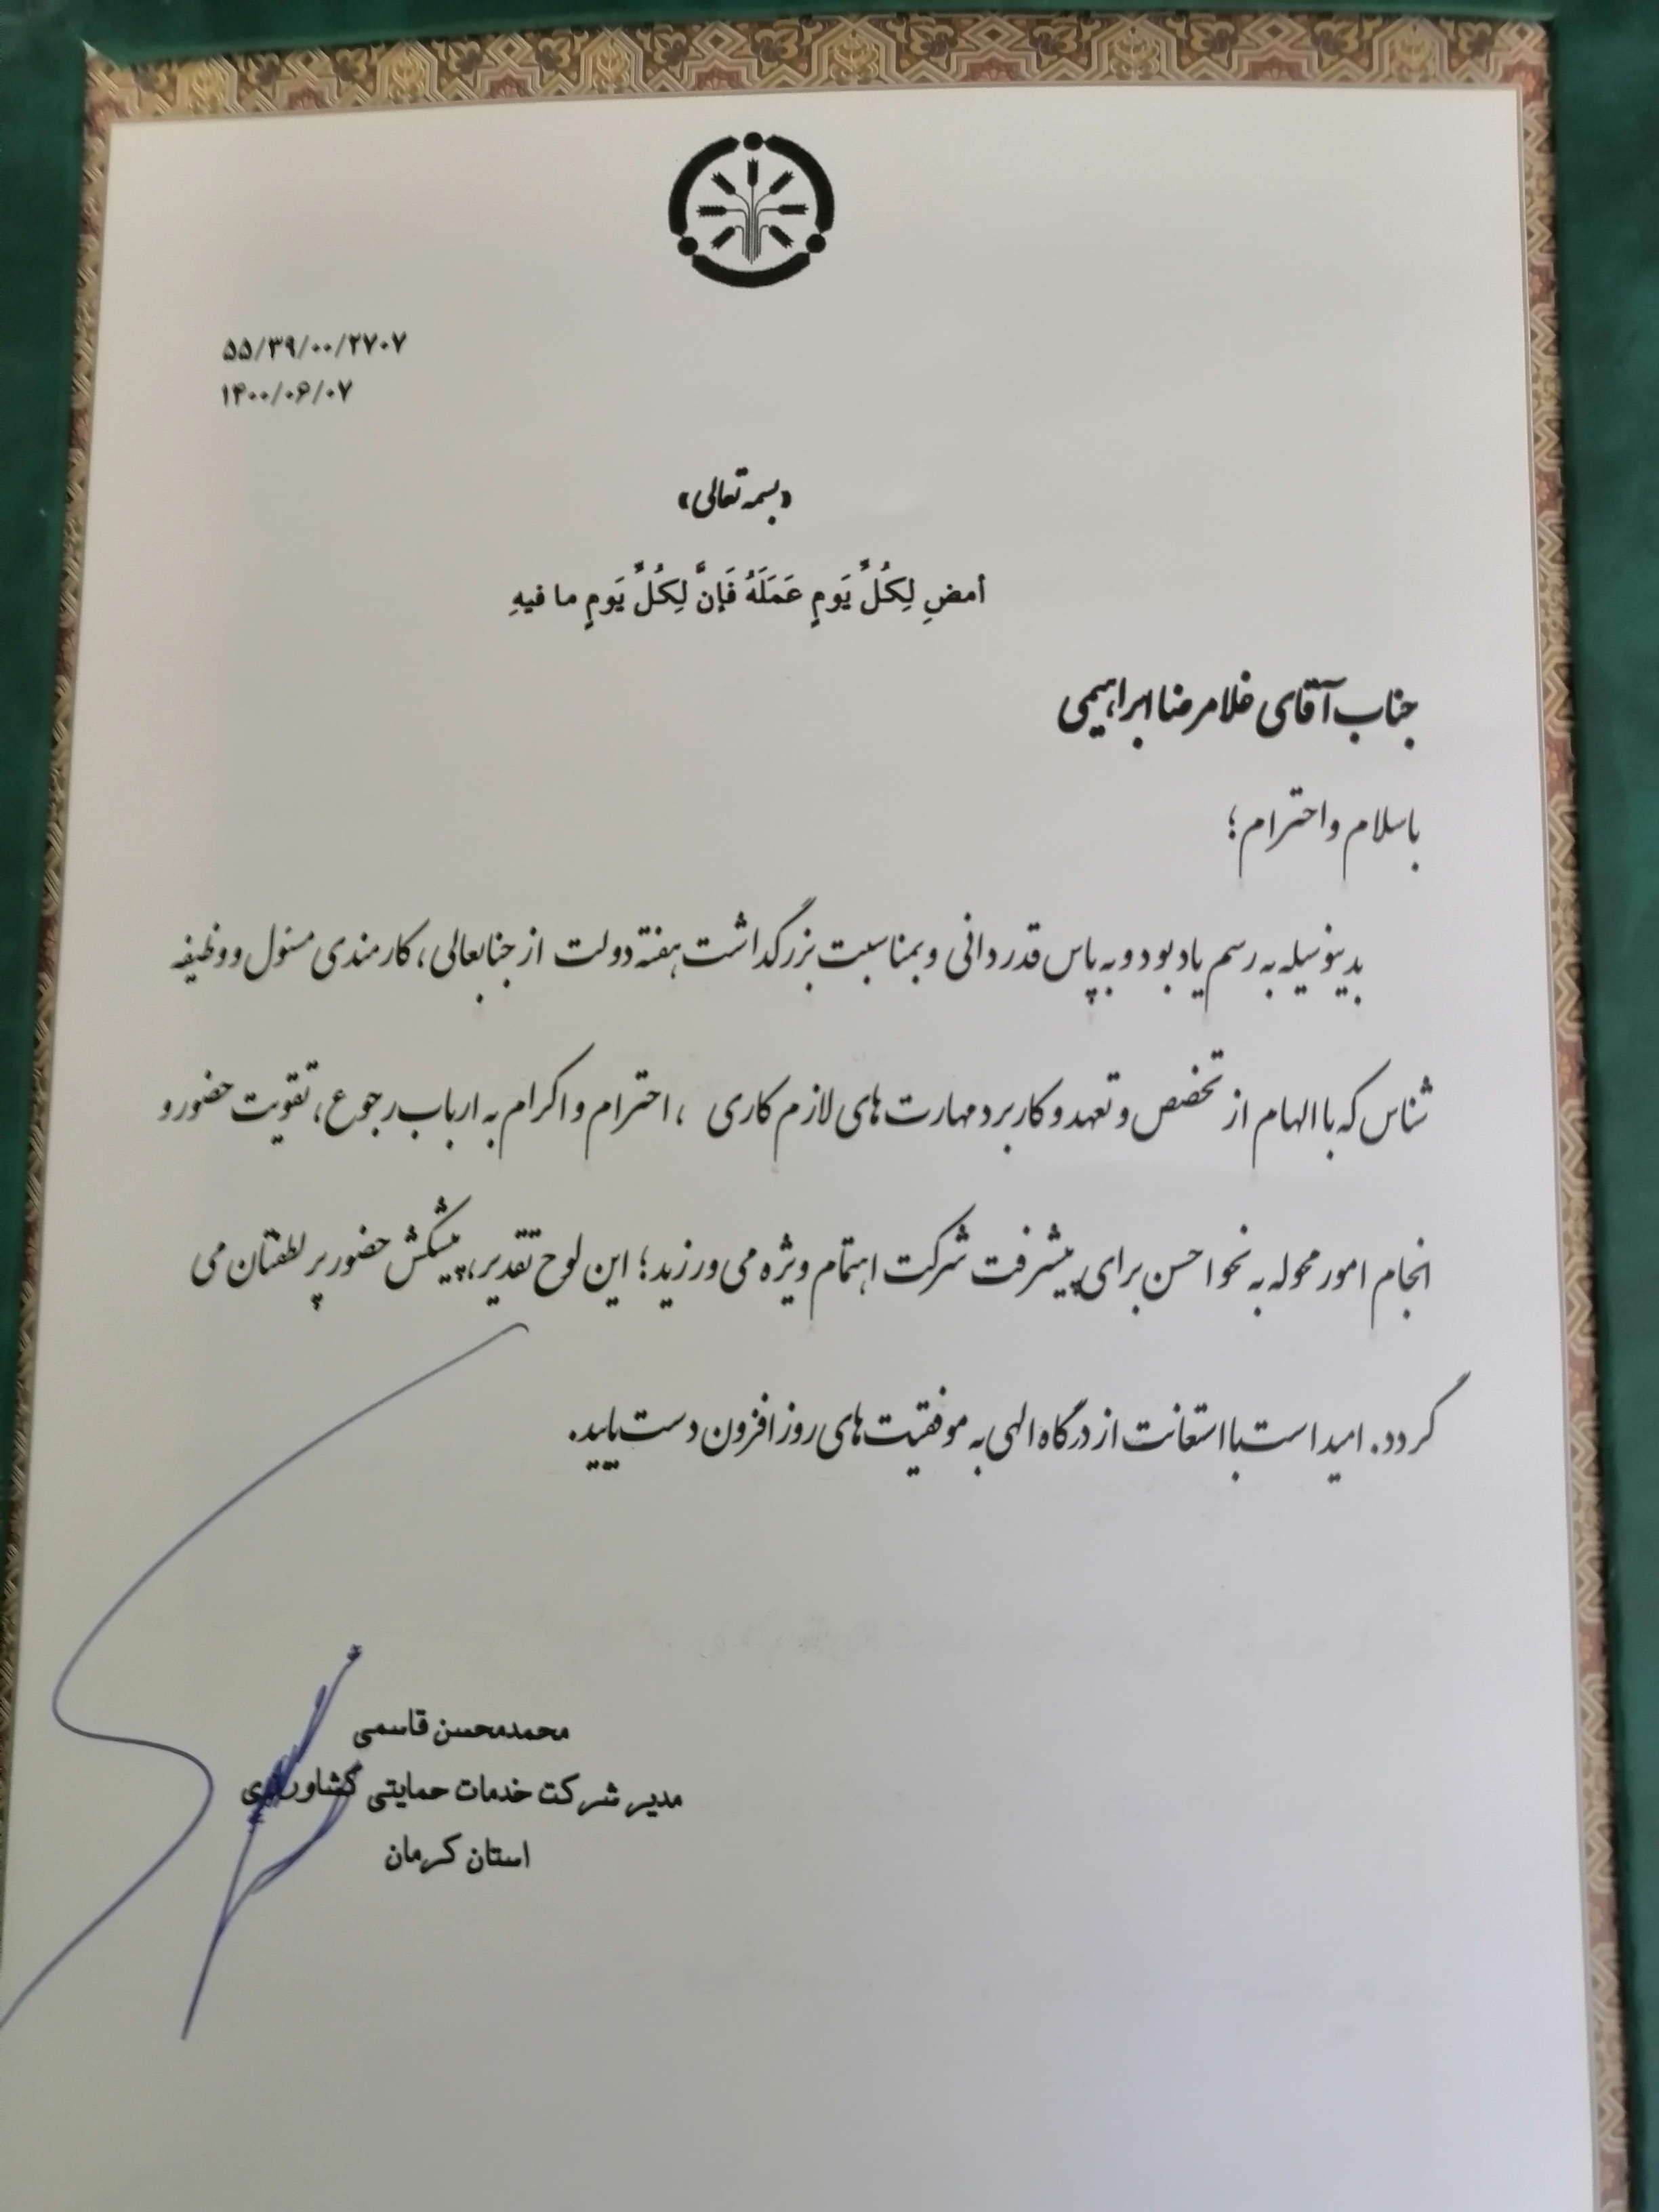 ۵۵/۳۹/۰۰/۲۷۰۷
۱۴۰۰/۰۶/۰۷
«بسمه تعالی»
أمضِ لِکُلِّ یَومٍ عَمَلَهُ فَإنَّ لِکُلِّ یَومٍ ما فیهِ
جناب آقای غلامرضا ابراهیمی
با سلام و احترام؛
بدینوسیله به رسم یادبود و به پاس قدردانی و بمناسبت بزرگداشت هفته دولت از جنابعالی، کارمندی مسئول و وظیفه
شناس که با الهام از تخصص و تعهد و کاربرد مهارت های لازم کاری ، احترام و اکرام به ارباب رجوع، تقویت حضور و
انجام امور محوله به نحو احسن برای پیشرفت شرکت اهتمام ویژه می ورزید؛ این لوح تقدیر، پیشکش حضور پر لطفتان می
گردد. امید است با استعانت از درگاه الهی به موفقیت های روز افزون دست یابید.
محمدمحسن قاسمی
مدیر شرکت خدمات حمایتی کشاورزی
استان کرمان